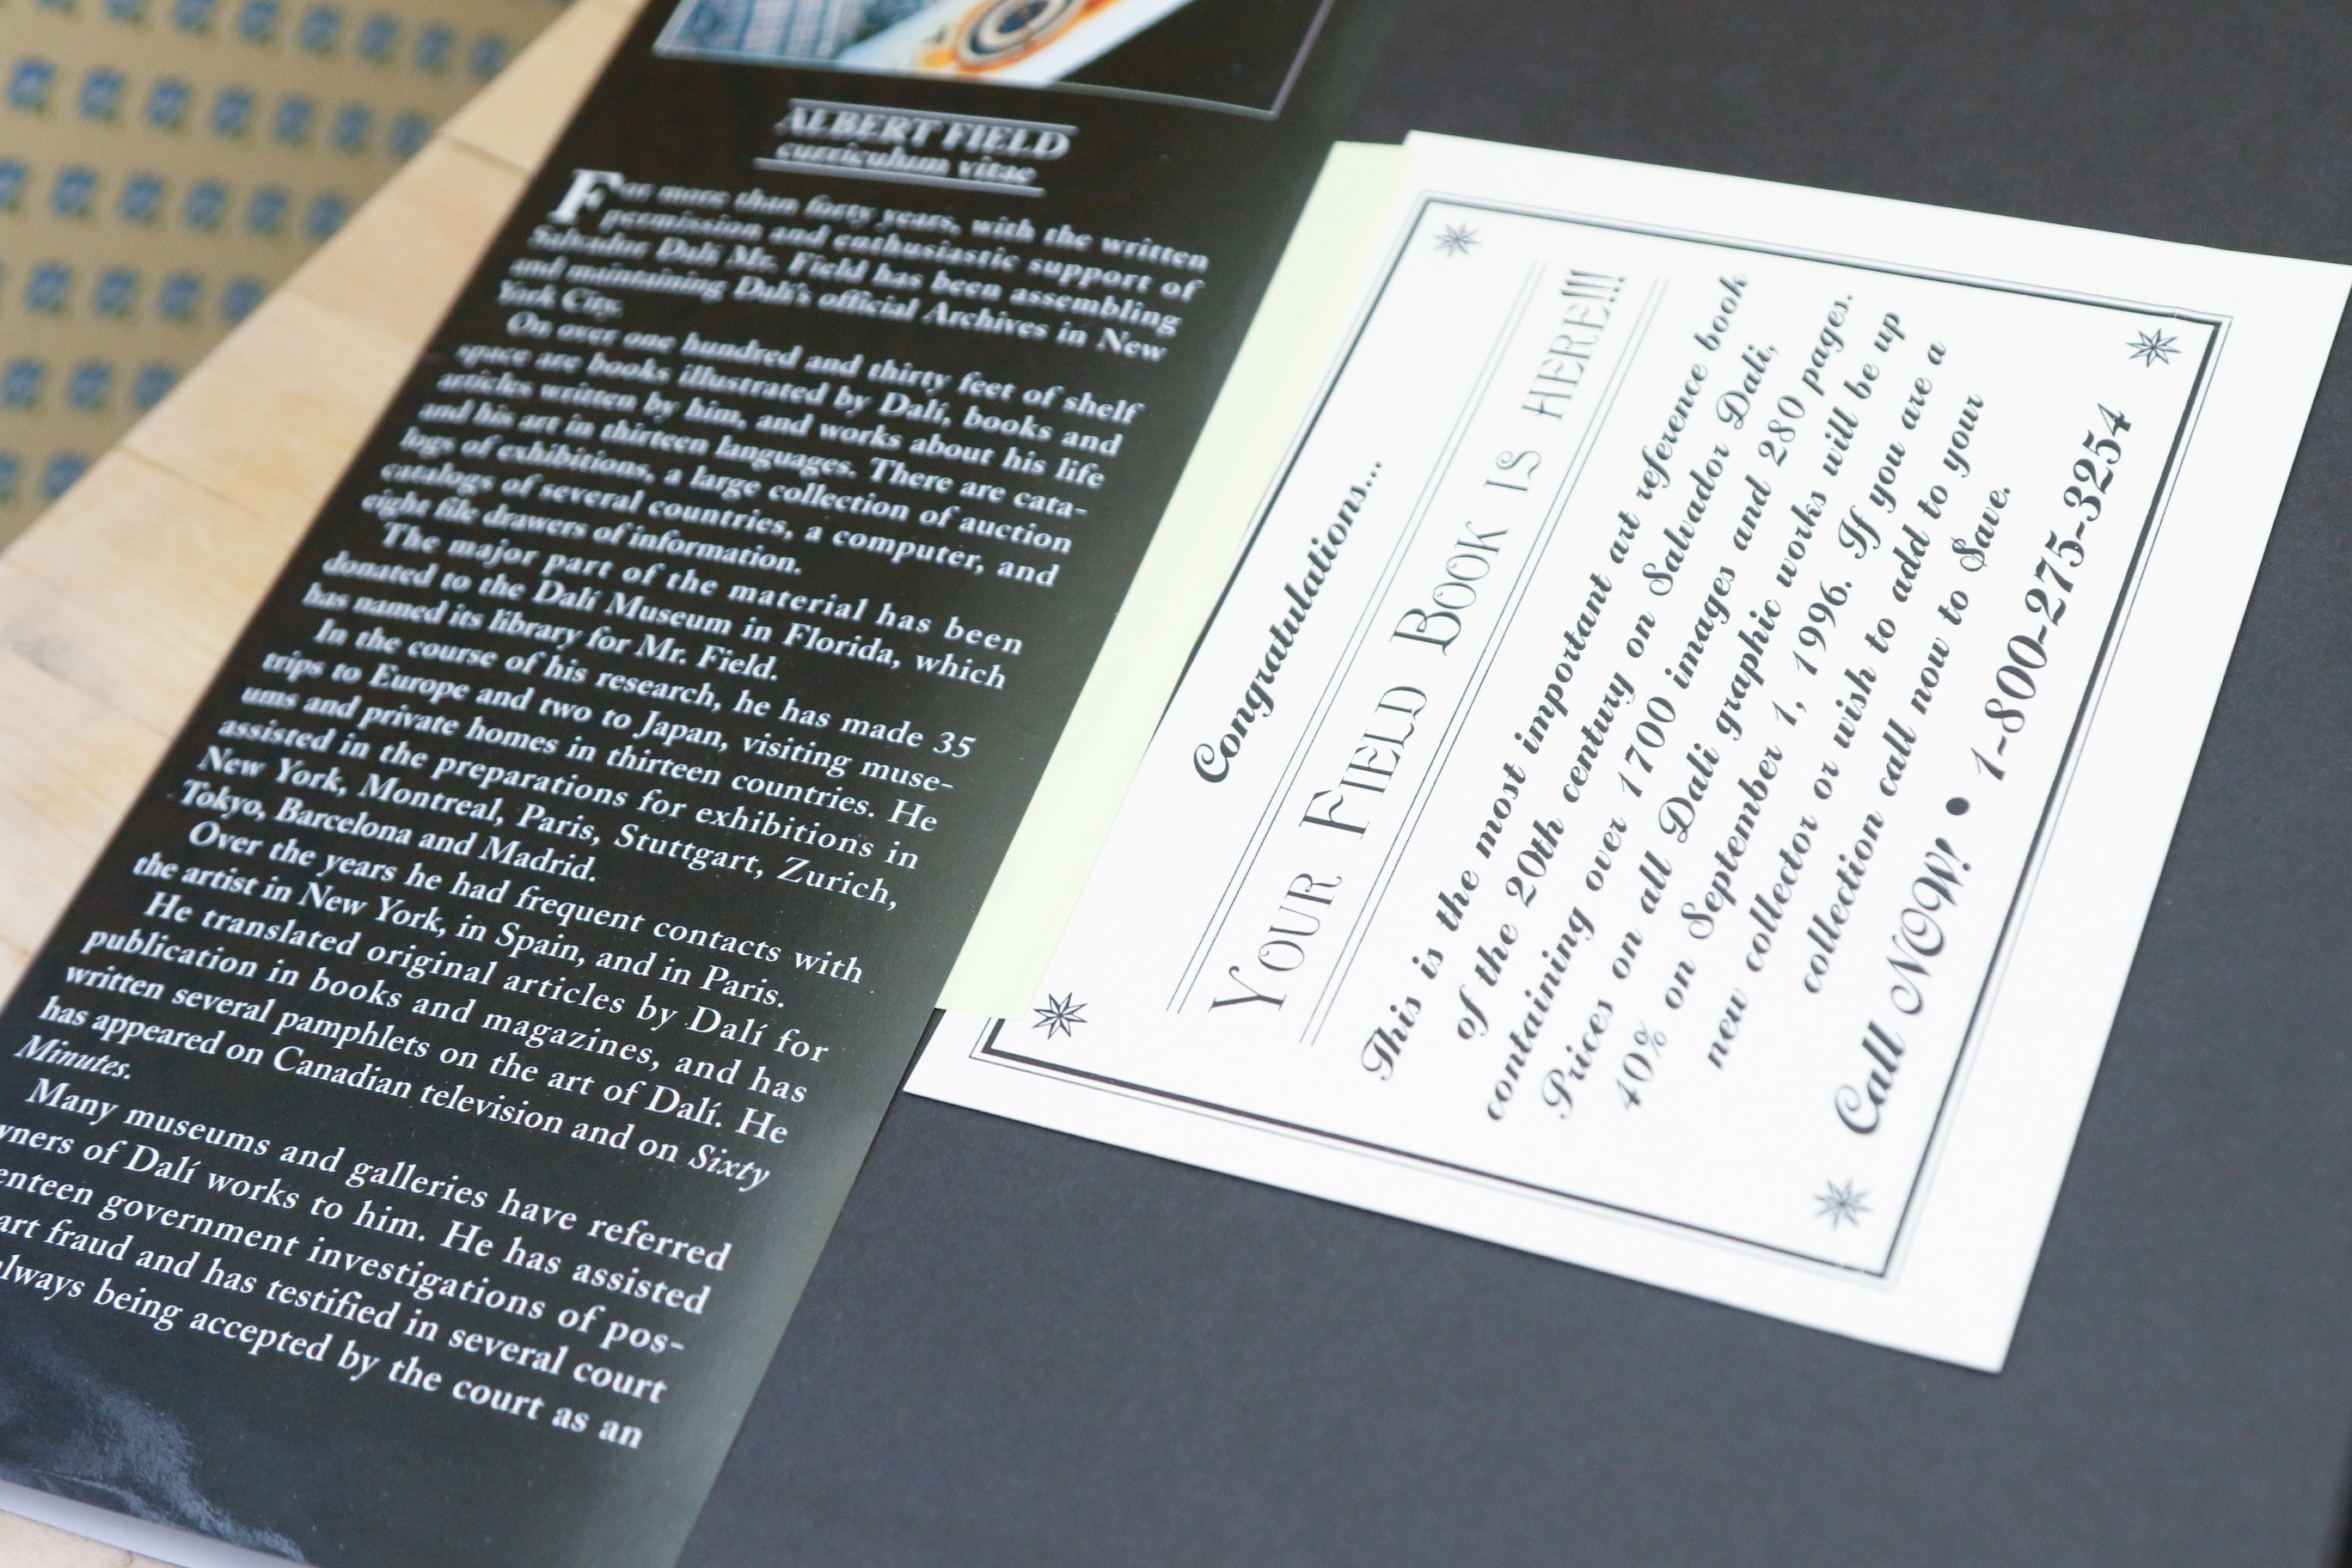 ALBERT FIELD
curriculum vitae
For more than forty years, with the written
permission and enthusiastic support of
Salvador Dalí Mr. Field has been assembling
and maintaining Dalí's official Archives in New
York City.
On over one hundred and thirty feet of shelf
space are books illustrated by Dalí, books and
articles written by him, and works about his life
and his art in thirteen languages. There are cata-
logs of exhibitions, a large collection of auction
catalogs of several countries, a computer, and
eight file drawers of information.
The major part of the material has been
donated to the Dalí Museum in Florida, which
has named its library for Mr. Field.
In the course of his research, he has made 35
trips to Europe and two to Japan, visiting muse-
ums and private homes in thirteen countries. He
assisted in the preparations for exhibitions in
New York, Montreal, Paris, Stuttgart, Zurich,
Tokyo, Barcelona and Madrid.
Over the years he had frequent contacts with
the artist in New York, in Spain, and in Paris.
He translated original articles by Dalí for
publication in books and magazines, and has
written several pamphlets on the art of Dalí. He
has appeared on Canadian television and on Sixty
Minutes.
Many museums and galleries have referred
of Dalí works to him. He has assisted
government investigations of pos-
art fraud and has testified in several court
being accepted by the court as an
Congratulations...
YOUR FIELD BOOK IS HERE!!!
This is the most important art reference book
of the 20th century on Salvador Dali,
containing over 1700 images and 280 pages.
Prices on all Dali graphic works will be up
40% on September 1, 1996. If you are a
new collector or wish to add to your
collection call now to $ave.
Call NOW! • 1-800-275-3254